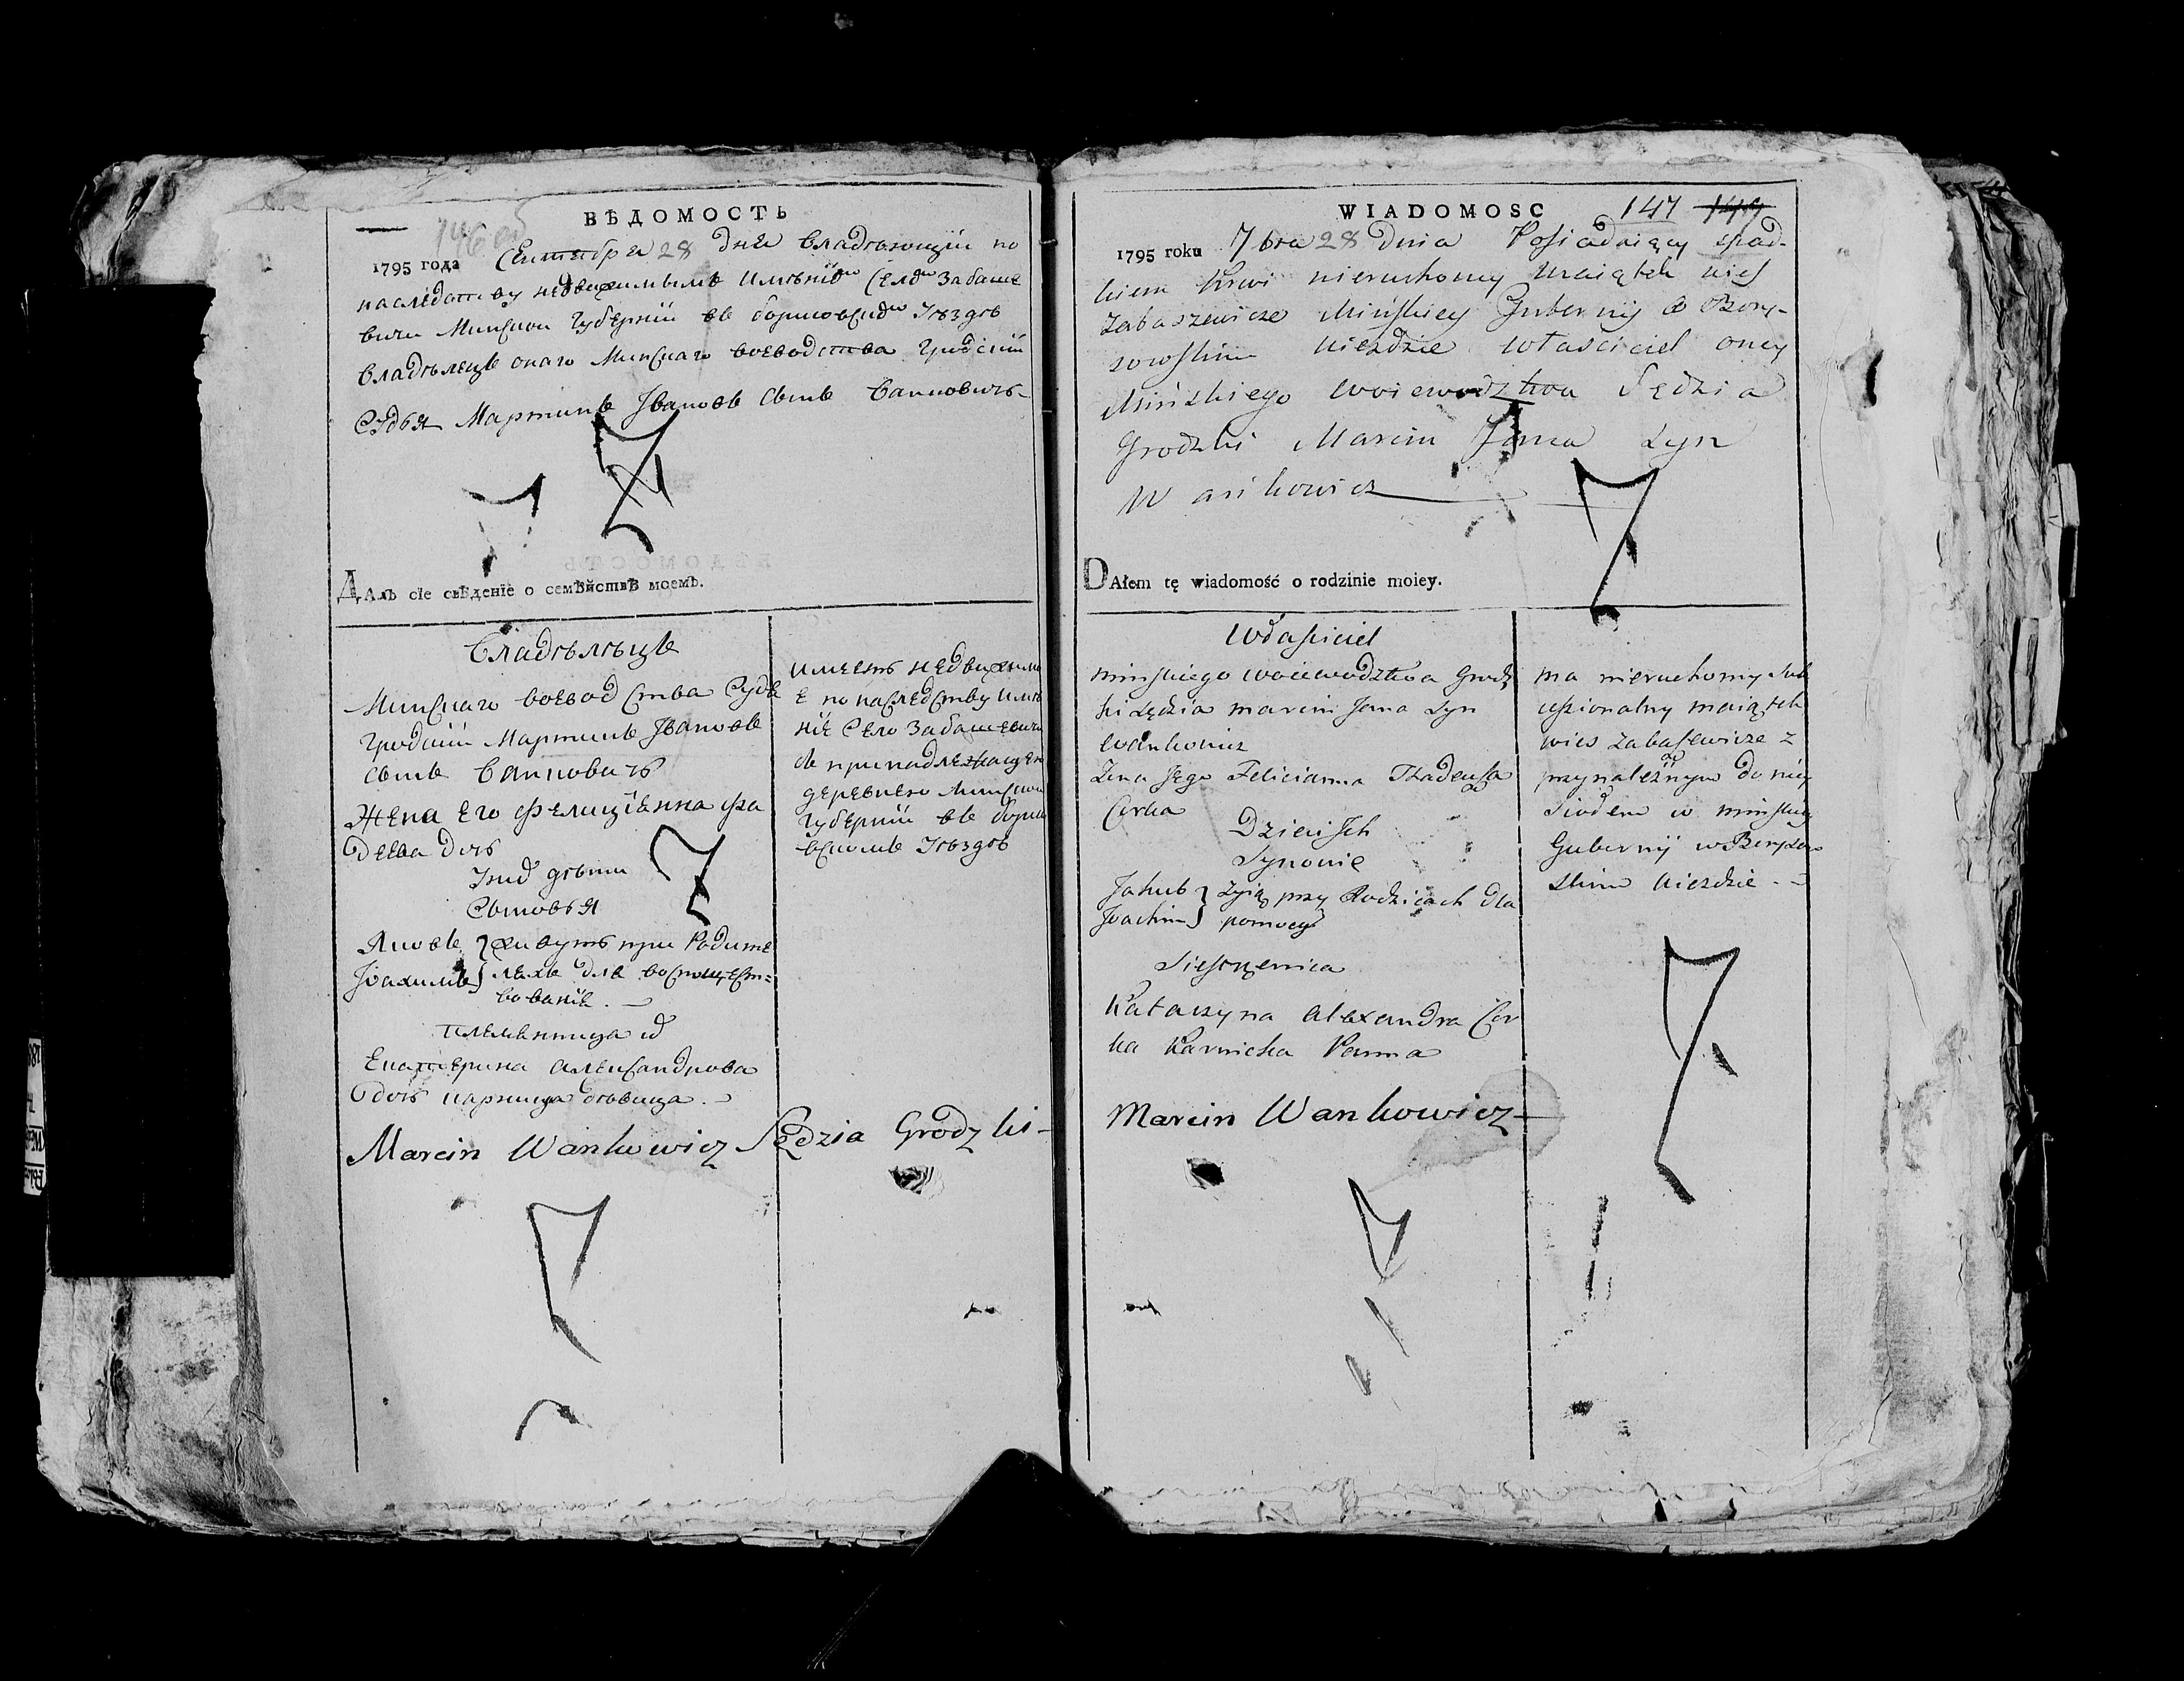 ВѢДОМОСТЬ
146 об
1795 года Сентября 28 дня владѣющій по
наследству недвижимымъ имѣніемъ селомъ Забаше
вичи Минской Губерніи въ борисовскомъ уѣздѣ
владѣлецъ онаго Минскаго воеводства гродскій
судья Мартинъ Iвановъ сынъ Ваньковичь
ДАлъ сіе свѣденіе о семѣйствѣ моемъ.
Владѣлецъ
Минскаго воеводства судья
гродскій Мартинъ Iвановъ
сынъ Ваньковичь
Жена его Фелиціанна Фа
деева дочь
У них дѣти
Сыновья
Яковъ } живутъ при Родите
Iоахимъ } ляхъ для
вованія. —
племянница
Екатерина Александрова
дочь Карницка девица. —
имеетъ недвижимо
е по наследству имѣ
ніе Село Забашевичи
съ принадлежащею
деревнею Минской
Губерніи въ борис
вскомъ уѣздѣ
Marcin Wankowicz Sędzia Grodzki —
WIADOMOSC 147 149
1795 roku 7bra 28 Dnia Posiadaiący spad-
kiem Krwi nieruchomy Maiątek wieś
Zabaszewicze Mińskiey Gubernij w Bory-
sowskim Uiezdzie Właściciel oney
Mińskiego Woiewodztwa Sędzia
Grodzki Marcin Jana Syn
Wankowicz
DAłem tę wiadomość o rodzinie moiey.
Właściciel
minskiego woiewodztwa Grodz
ki Sędzia marcin Jana Syn
Wankowicz
Zona Jego Felicianna Thadeusza
Corka
Dzieci Ich
Synowie
Jakub } żyią przy Rodzicach dla
Joachim } pomocy
Siestrzenica
Katarzyna Alexandra Cor
ka Karnicka Panna
Marcin Wankowicz —
ma nieruchomy Suk
cessionalny maiątek
wies Zabaszewicze z
przynależnym do niey
Siołem w minskiey
Gubernij w Boryzow
skim Uiezdzie. —